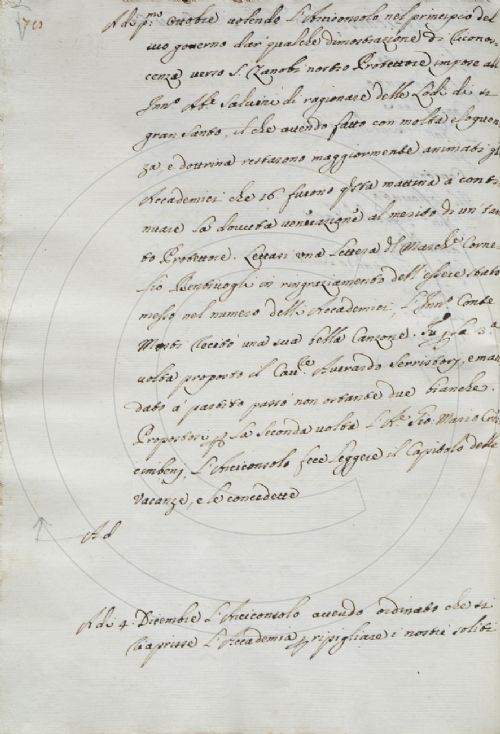 Ad:i p.mo Ottobre volendo l'Arciconsolo nel principio del
suo governo dar qualche dimostrazione di ricono-
scenza verso S. Zanobi nostro Protettore impose all'
Inn.o Ab.e Salvini di ragionare delle Lodi di si
gran Santo, il che avendo fatto con molta eloquen
za, e dottrina restarono maggiormente animati gl'
Accademici che 16 furono q.sta mattina a conti
nuare la dovuta venerazione al merito di un tan
to Protettore. Lettasi una lettera del March.e Corne
lio Bentivogli in ringraziamento dell'essere stato
messo nel numero dell'Accademici, l'Inn.o Conte
Monti recitò una sua bella Canzone. Fu p. la 3.a
volta proposto il Cav.re Averardo Serristori, e man
dato a partito passò non ostante due bianche.
Propostosi p. la seconda volta l'Ab.e Gio: Mario Cres
cimbenj, l'Arciconsolo fece leggere il Capitolo delle
vacanze, e le concedette
Ad
Ad:i 4. Dicembre l'Arciconsolo avendo ordinato che si
riaprisse l'Accademia p. ripigliare i nostri soliti